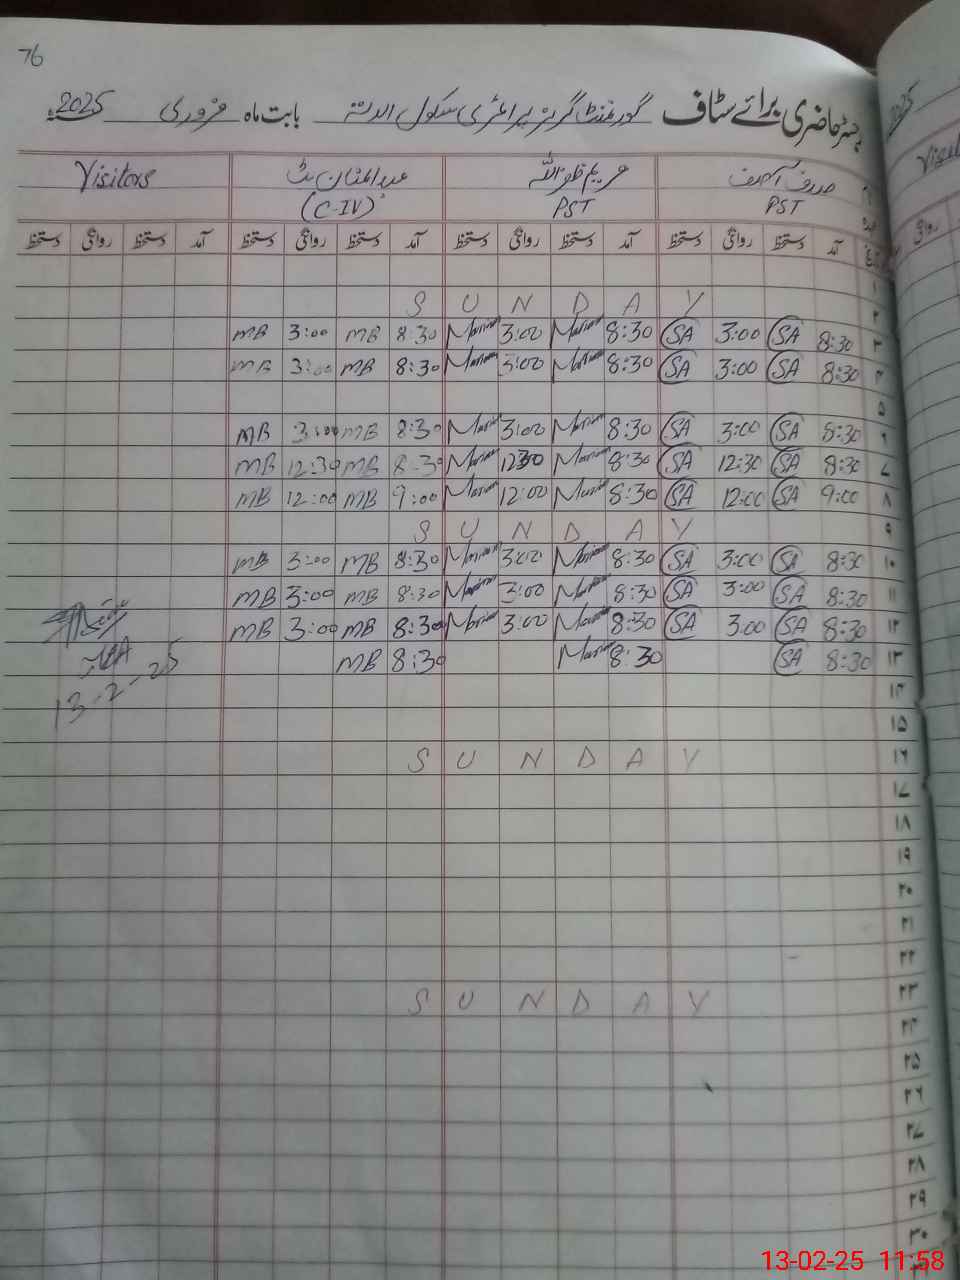 76
رجسٹر حاضری برائے سٹاف گورنمنٹ گرلز پرائمری سکول بابت ماہ فروری 2025
صدف آصف مریم ظفراللہ عبدالمنان بٹ Visitors
PST PST (C-IV)
آمد دستخط روانگی دستخط آمد دستخط روانگی دستخط آمد دستخط روانگی دستخط آمد دستخط روانگی دستخط
۱
۲ SUNDAY
۳ 8:30 SA 3:00 SA 8:30 Mariam 3:00 Mariam 8:30 MB 3:00 MB
۴ 8:30 SA 3:00 SA 8:30 Mariam 3:00 Mariam 8:30 MB 3:00 MB
۵
۶ 8:30 SA 3:00 SA 8:30 Mariam 3:00 Mariam 8:30 MB 3:00 MB
۷ 8:30 SA 12:30 SA 8:30 Mariam 12:30 Mariam 8:30 MB 12:30 MB
۸ 9:00 SA 12:00 SA 8:30 Mariam 12:00 Mariam 9:00 MB 12:00 MB
۹ SUNDAY
۱۰ 8:30 SA 3:00 SA 8:30 Mariam 3:00 Mariam 8:30 MB 3:00 MB
۱۱ 8:30 SA 3:00 SA 8:30 Mariam 3:00 Mariam 8:30 MB 3:00 MB
۱۲ 8:30 SA 3:00 SA 8:30 Mariam 3:00 Mariam 8:30 MB 3:00 MB
۱۳ 8:30 SA 8:30 Mariam 8:30 MB
13-2-25
۱۴
۱۵
۱۶ SUNDAY
۱۷
۱۸
۱۹
۲۰
۲۱
۲۲
۲۳ SUNDAY
۲۴
۲۵
۲۶
۲۷
۲۸
۲۹
۳۰
2025
روانگی
13-02-25 11:58